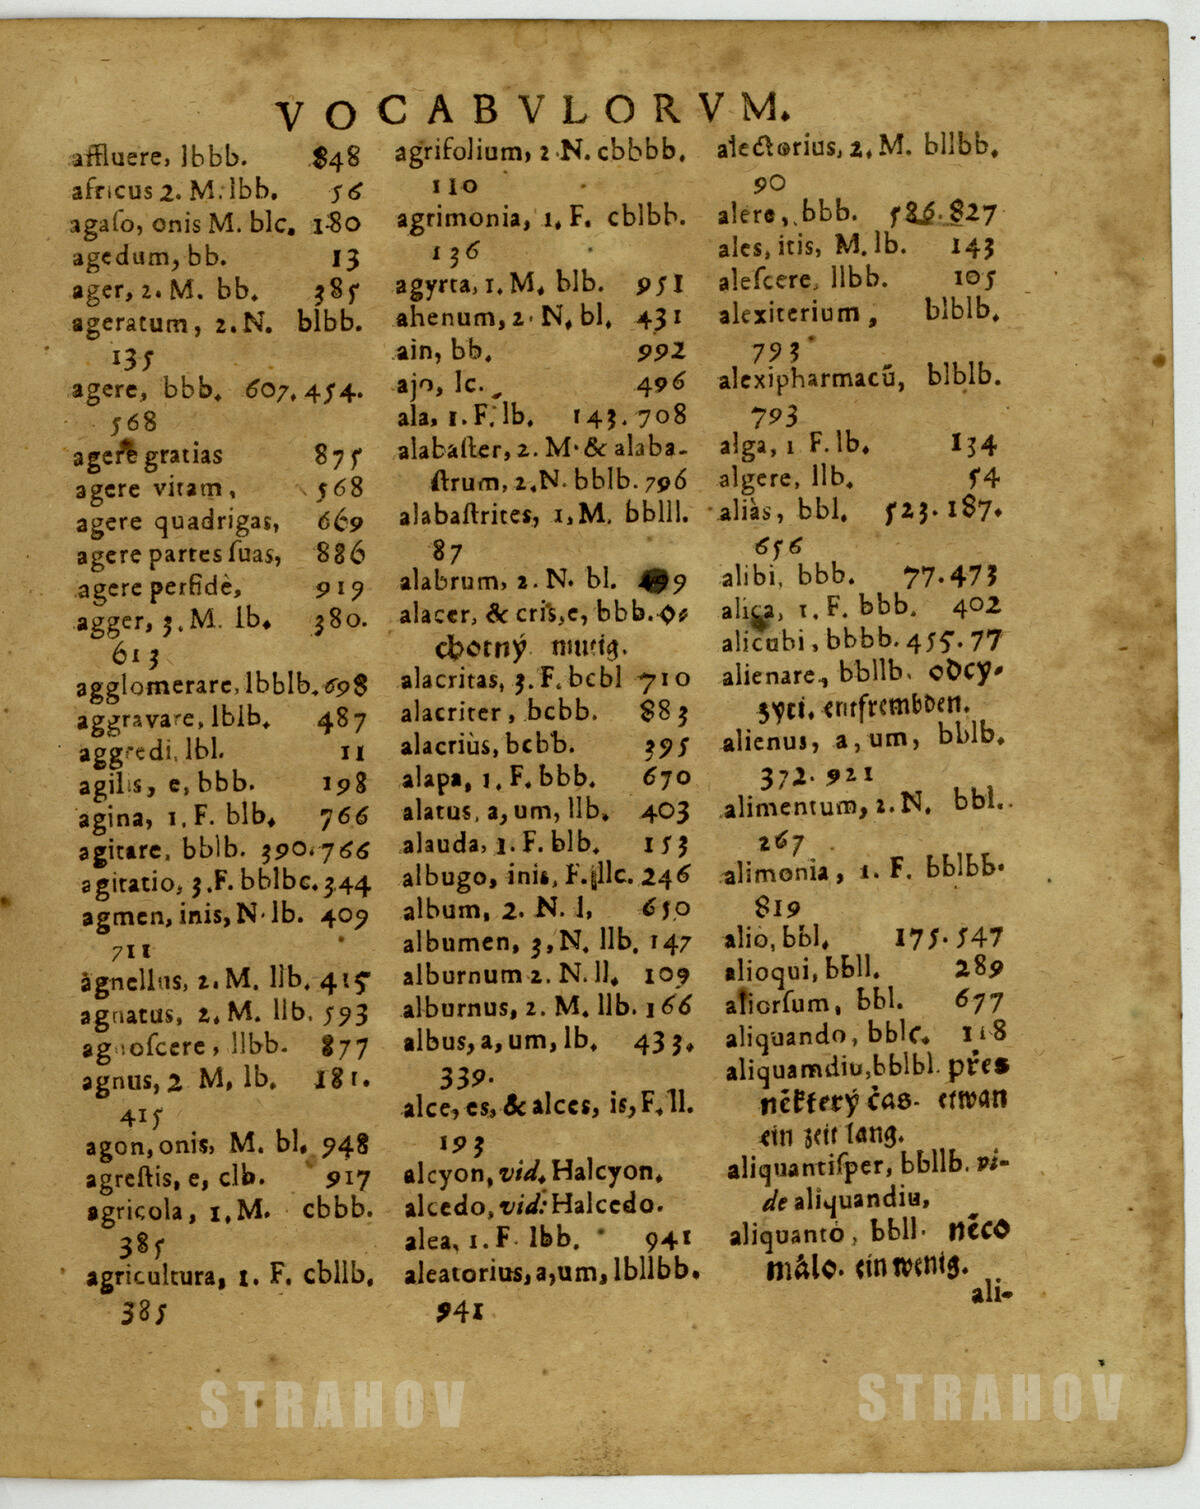 VOCABVLORVM.
affluere, lbbb. 848
africus 2. M. lbb. 56
agaſo, onis M. blc. 180
agedum, bb. 13
ager, 2. M. bb. 385
ageratum, 2. N. blbb.
135
agere, bbb. 607. 454.
568
agere gratias 875
agere vitam, 568
agere quadrigas, 669
agere partes ſuas, 886
agere perfidè, 919
agger, 3. M. lb. 380.
613
agglomerare, lbblb. 698
aggravare, lblb. 487
aggredi, lbl. 11
agilis, e, bbb. 198
agina, 1. F. blb. 766
agitare, bblb. 390. 766
agitatio, 3. F. bblbc. 344
agmen, inis, N. lb. 409
711
agnellus, 2. M. llb. 415
agnatus, 2. M. llb. 593
agnoſcere, llbb. 877
agnus, 2 M. lb. 181.
415
agon, onis, M. bl. 948
agreſtis, e, clb. 917
agricola, 1. M. cbbb.
385
agricultura, 1. F. cbllb.
385
agrifolium, 2 N. cbbbb.
110
agrimonia, 1. F. cblbb.
136
agyrta, 1. M. blb. 951
ahenum, 2. N. bl. 431
ain, bb. 992
ajo, lc. 496
ala, 1. F. lb. 143. 708
alabaſter, 2. M. & alaba-
ſtrum, 2. N. bblb. 796
alabaſtrites, 1. M. bblll.
87
alabrum, 2. N. bl. 499
alacer, & cris, e, bbb. O-
chotný mutig.
alacritas, 3. F. bcbl 710
alacriter, bcbb. 883
alacriùs, bcbb. 395
alapa, 1. F. bbb. 670
alatus, a, um, llb. 403
alauda, 1. F. blb. 153
albugo, inis, F. llc. 246
album, 2. N. l, 650
albumen, 3, N. llb. 147
alburnum 2. N. ll. 109
alburnus, 2. M. llb. 166
albus, a, um, lb. 433.
339.
alce, es, & alces, is, F. ll.
193
alcyon, vid. Halcyon.
alcedo, vid: Halcedo.
alea, 1. F. lbb. 941
aleatorius, a, um, lbllbb.
941
alectorius, 2. M. bllbb.
90
alere, bbb. 586. 827
ales, itis, M. lb. 143
aleſcere, llbb. 105
alexiterium, blblb.
793
alexipharmacū, blblb.
793
alga, 1 F. lb. 134
algere, llb. 54
aliàs, bbl. 523. 187.
656
alibi, bbb. 77. 473
alica, 1. F. bbb. 402
alicubi, bbbb. 455. 77
alienare, bbllb. odcy-
zyti. entfrembden.
alienus, a, um, bblb.
372. 921
alimentum, 2. N. bbl..
267
alimonia, 1. F. bblbb.
819
alio, bbl. 175. 547
alioqui, bbll. 289
aliorſum, bbl. 677
aliquando, bblc. 118
aliquamdiu, bblbl. přes
některý čas. etwan
ein zeit lang.
aliquantiſper, bbllb. vi-
de aliquandiu,
aliquantò, bbll. něco
málo. ein wenig.
ali-
STRAHOV STRAHOV